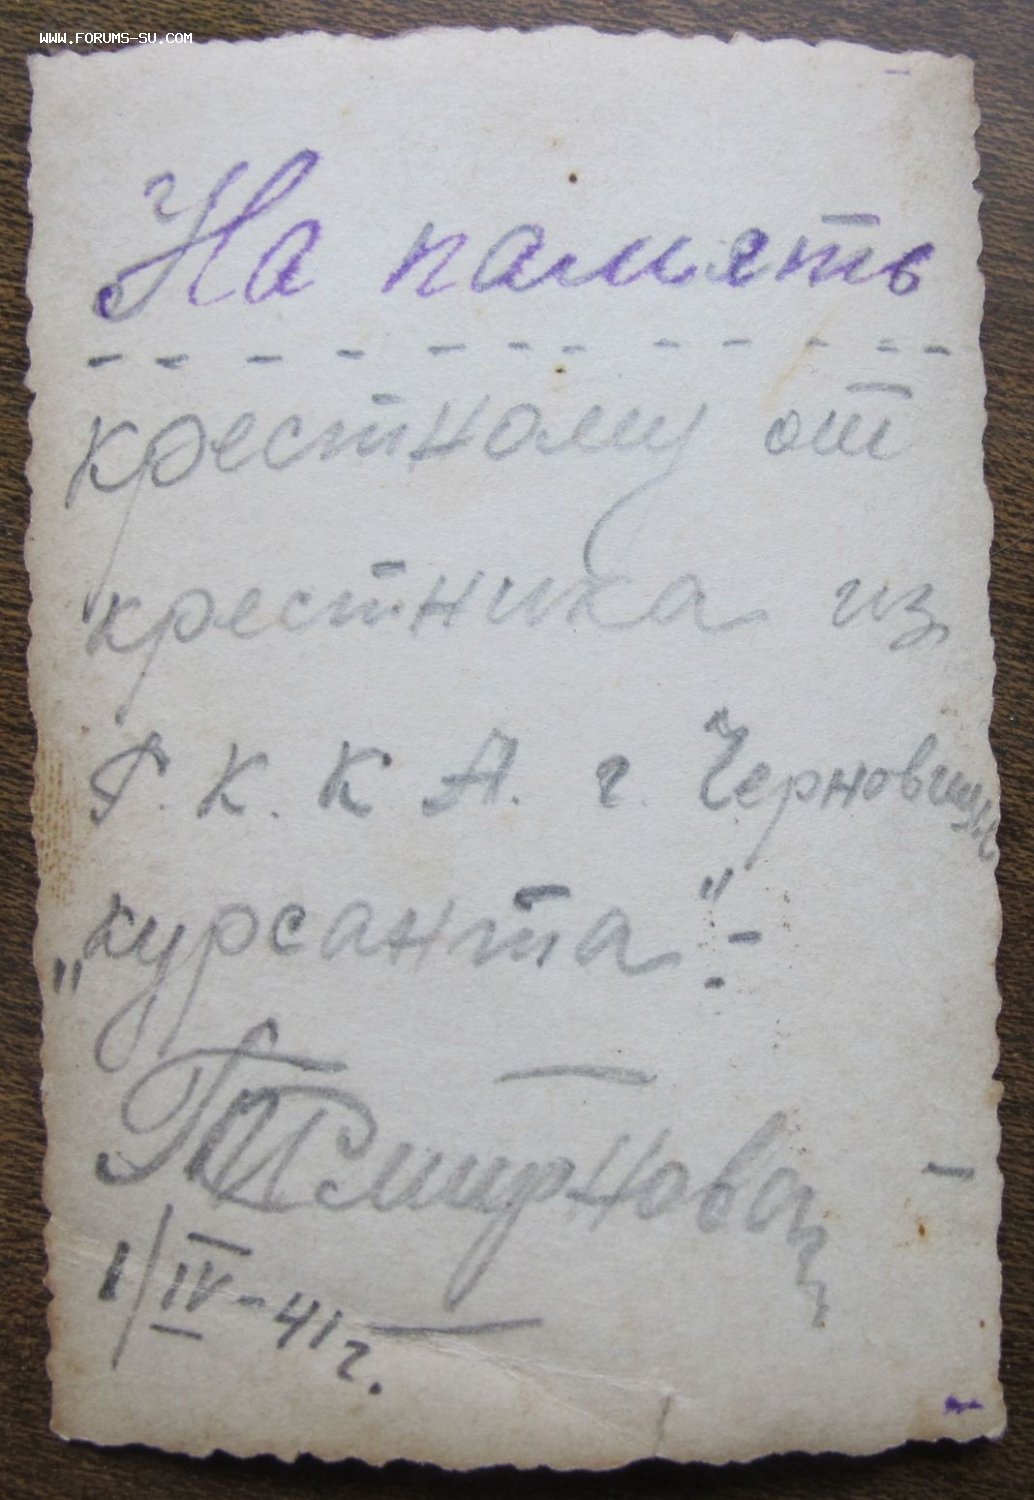 WWW.FORUMS-SU.COM
На память
крестному от
крестника из
Р. К. К А. г. Черновицы
„курсанта".-
Смирнова
1/IV-41 г.